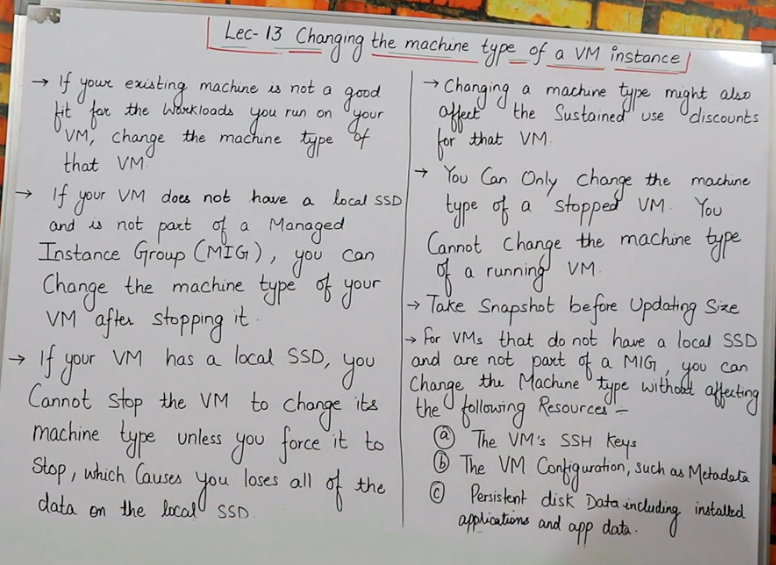 Lec-13 Changing the machine type of a VM instance
→ If your existing machine is not a good
fit for the Workloads you run on your
VM, change the machine type of
that VM
→ If your VM does not have a local SSD
and is not part of a Managed
Instance Group (MIG), you can
Change the machine type of your
VM after stopping it.
→ If your VM has a local SSD, you
Cannot Stop the VM to change its
machine type unless you force it to
Stop, which Causes you loses all of the
data on the local SSD.
→ Changing a machine type might also
affect the Sustained use discounts
for that VM.
→ You Can Only change the machine
type of a stopped VM. You
Cannot change the machine type
of a running VM.
→ Take Snapshot before Updating Size
→ For VMs that do not have a local SSD
and are not part of a MIG, you can
Change the Machine type without affecting
the following Resources -
(a) The VM's SSH Keys
(b) The VM Configuration, such as Metadata
(c) Persistent disk Data including installed
applications and app data.